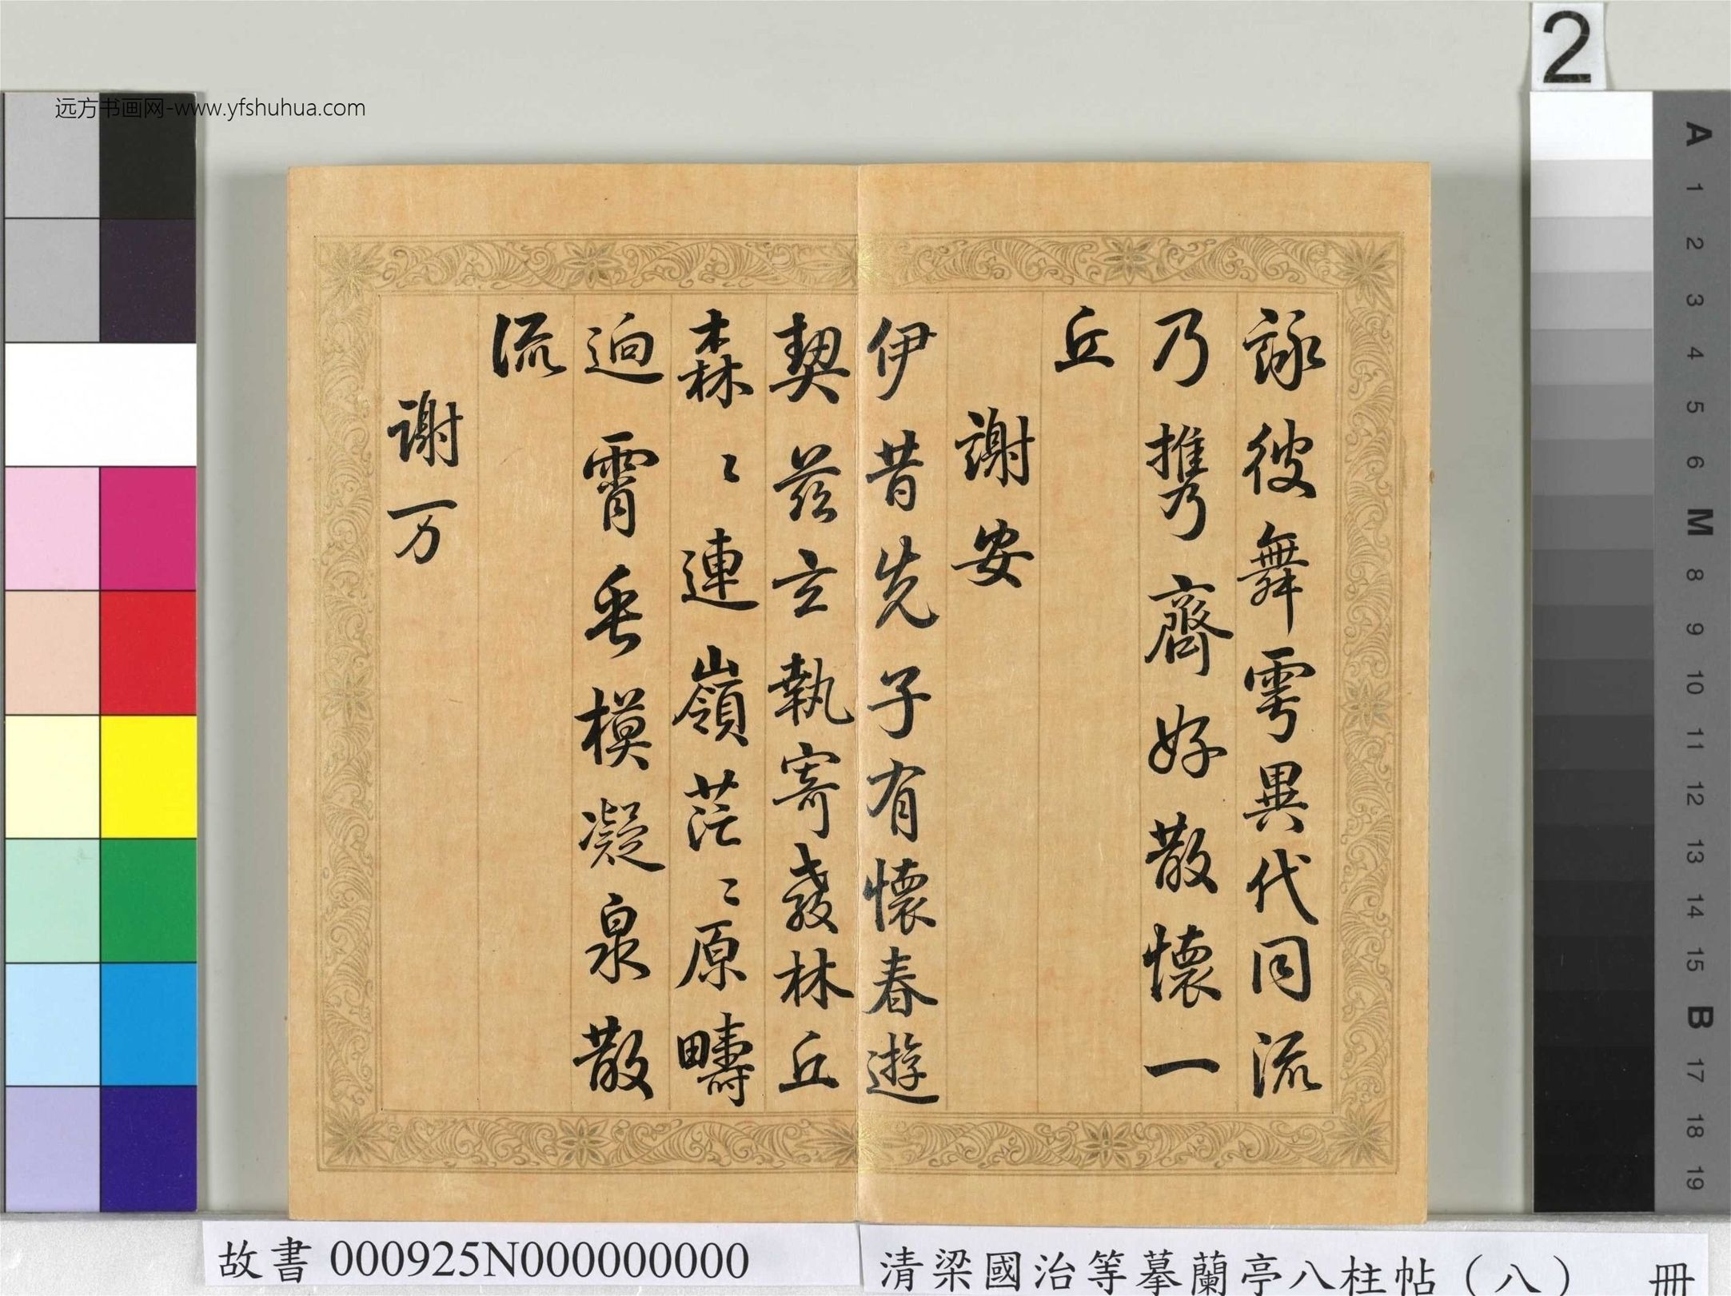 詠彼舞雩異代同流
乃携齊好散懷一
丘
謝安
伊昔先子有懷春遊
契茲言執寄敖林丘
森〻連嶺茫〻原疇
逈霄垂模凝泉散
流
謝万
远方书画网-www.yfshuhua.com
2
A
1
2
3
4
5
6
M
8
9
10
11
12
13
14
15
B
17
18
19
故書 000925N000000000
清梁國治等摹蘭亭八柱帖（八） 冊